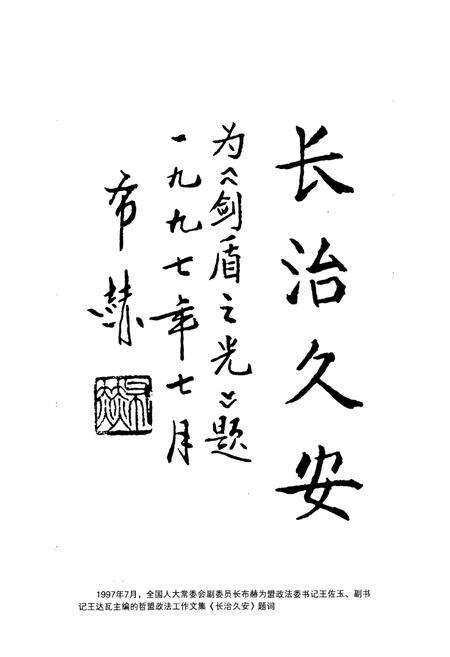 长治久安
为《剑盾之光》题
一九九七年七月
布赫
1997年7月，全国人大常委会副委员长布赫为盟政法委书记王佐玉、副书
记王达瓦主编的哲盟政法工作文集《长治久安》题词